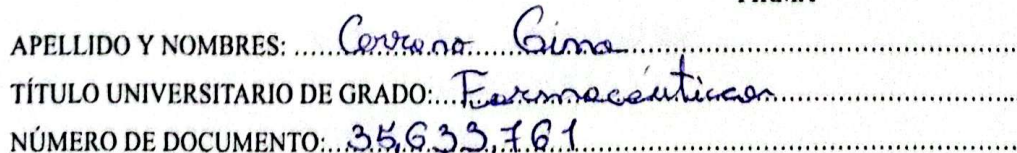 APELLIDO Y NOMBRES: Cerrano Gima
TÍTULO UNIVERSITARIO DE GRADO: Farmacéutica
NÚMERO DE DOCUMENTO: 35,633,761